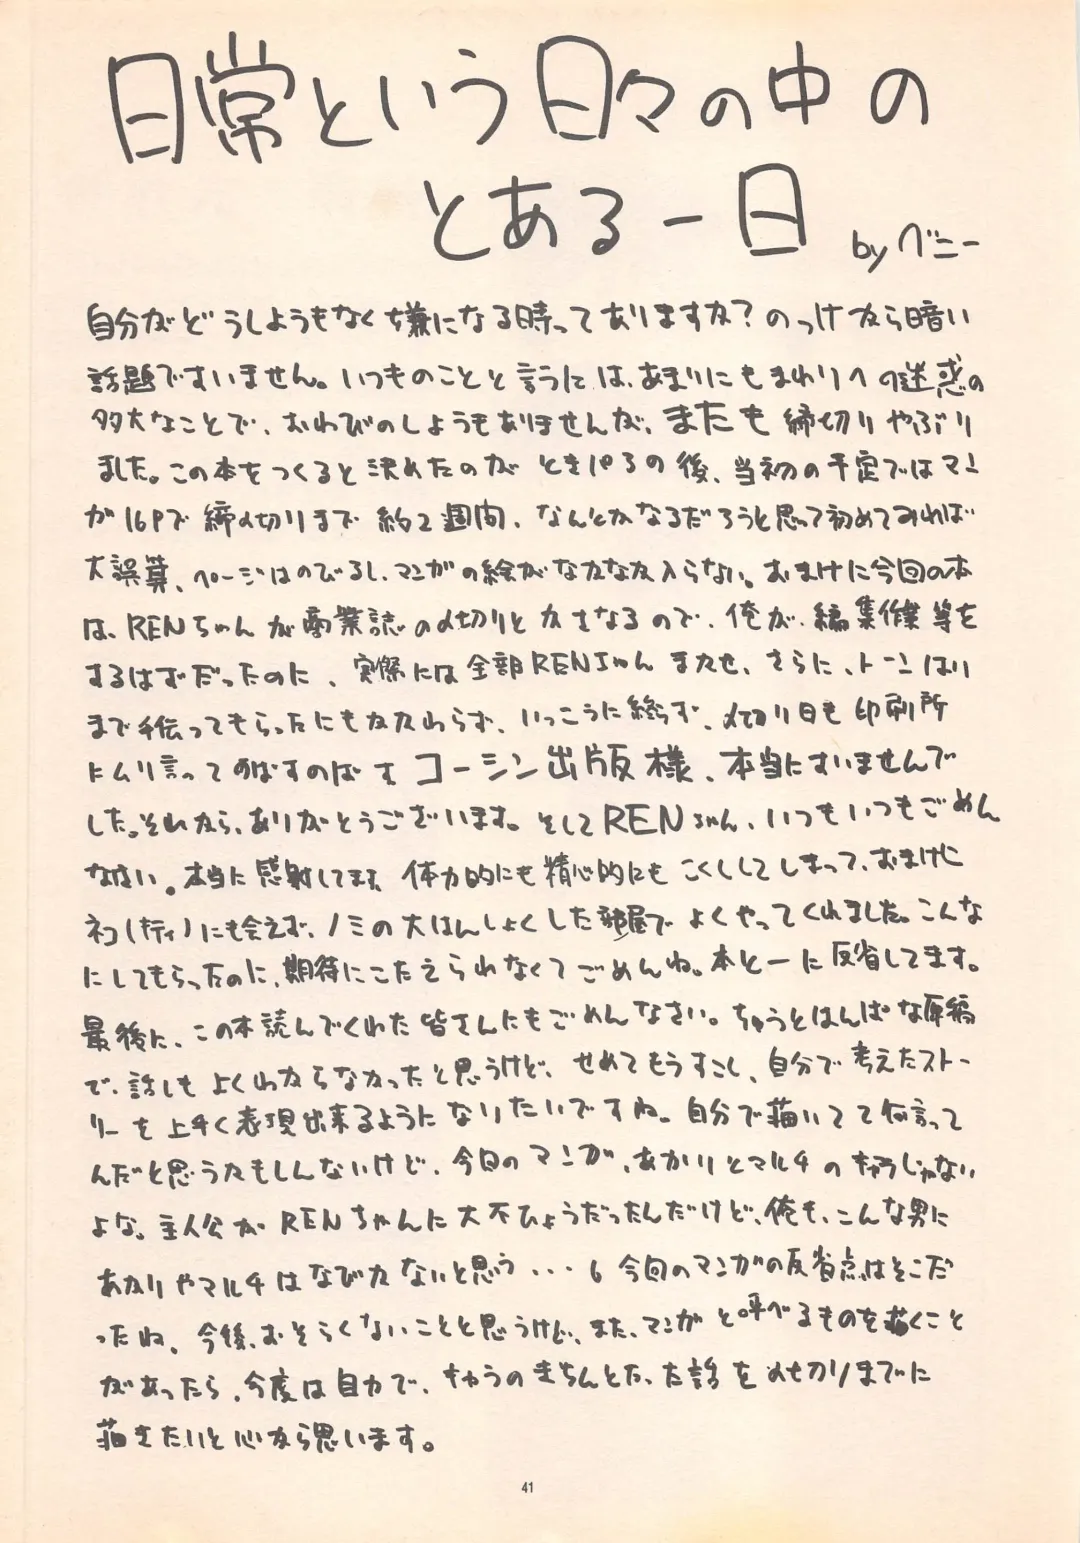 日常という日々の中の
とある一日 by ベニー
自分がどうしようもなく嫌になる時ってありますか?のっけから暗い
話題ですいません。いつものことと言うには、あまりにもまわりへの迷惑の
多大なことで、おわびのしようもありませんが、またも締切りやぶり
ました。この本をつくると決めたのがときパろの後、当初の予定ではマン
が16Pで締め切りまで約2週間、なんとかなるだろうと思って初めてみれば
大誤算、ページはのびるし、マンガの絵がなかなか入らない。おまけに今回の本
は、RENちゃんが商業誌の〆切りとかさなるので、俺が、編集作業等を
するはずだったのに、実際には全部RENちゃんまかせ、さらに、トーンはり
まで手伝ってもらったにもかかわらず、いっこうに終らず、〆切り日も印刷所
にムリ言ってのばすのばすコーシン出版様、本当にすいませんで
した。それから、ありがとうございます。そしてRENちゃん、いつもいつもごめん
なさい。本当に感謝してます体力的にも精心的にもこくししてしまって、おまけに
ネコ(キティ)にも会えず、ノミの大はんしょくした部屋でよくやってくれました。こんな
にしてもらったのに、期待にこたえられなくてごめんね。本と一に反省してます。
最後に、この本読んでくれた皆さんにもごめんなさい。ちゅうとはんぱな原稿
で、話しもよくわからなかったと思うけど、せめてもうすこし、自分で考えたストー
リーを上手く表現出来るようになりたいですね。自分で描いてて何言って
んだと思うかもしんないけど、今日のマンガ、あかりとマルチのキャラじゃない
よな。主人公がRENちゃんに大不ひょうだったんだけど、俺も、こんな男に
あかりやマルチはなびかないと思う・・・。今回のマンガの反省点はそこだ
ったね。今後、おそらくないことと思うけど、また、マンガと呼べるものを描くこと
があったら、今度は自力で、キャラのきちんとたった話を〆切りまでに
描きたいと心から思います。
41